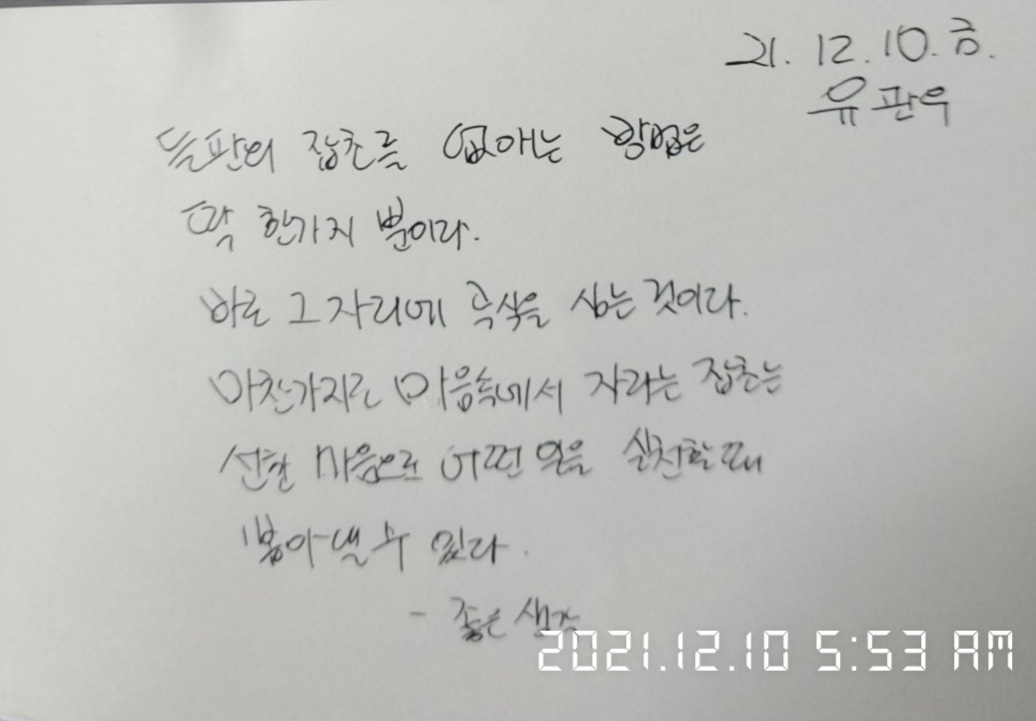 21. 12. 10. 금.
유관우
들판의 잡초를 없애는 방법은
딱 한가지 뿐이다.
바로 그 자리에 곡식을 심는 것이다.
마찬가지로 마음속에서 자라는 잡초는
선한 마음으로 어떤 일을 실천할 때
뽑아낼 수 있다.
- 좋은 생각
2021.12.10 5:53 AM